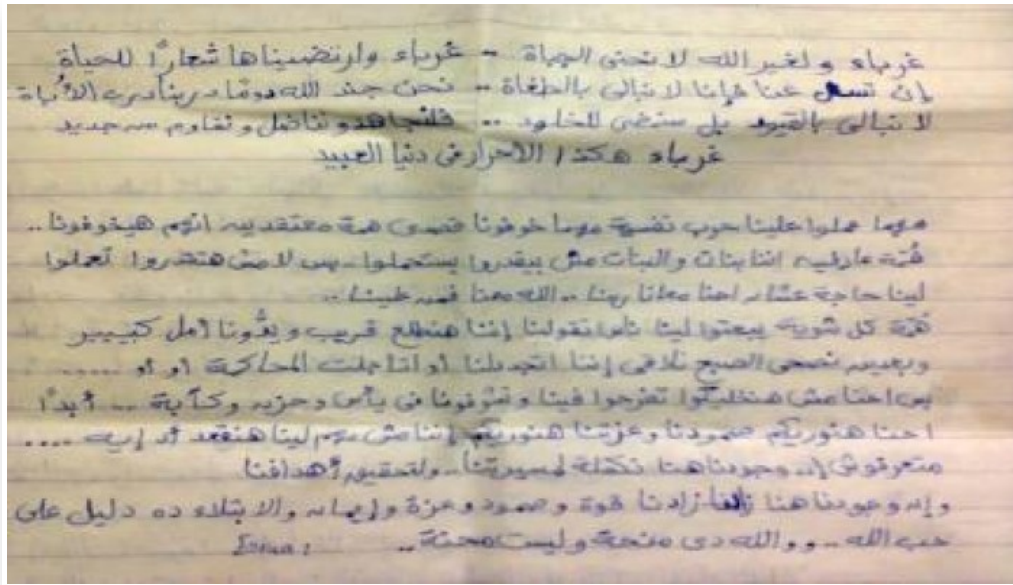 غرباء ولغير الله لا نحنى الجباة -- غرباء وارتضيناها شعارًا للحياة
إن تسل عنا فإنا لا نبالى بالطغاة -- نحن جند الله دومًا دربنا درب الأُباة
لا نبالى بالقيود بل سنمضى للخلود -- فلنجاهد ونناضل ونقاوم من جديد
غرباء هكذا الأحرار فى دنيا العبيد
مهما عملوا علينا حرب نفسية مهما خوفونا قصدى همة معتقدين انهم هيخوفونا ..
هُمّة عارفين اننا بنات والبنات مش بيقدروا يستحملوا .. بس لا مش هتقدروا تعملوا
لينا حاجة عشان احنا معانا ربنا .. الله معنا فمن علينا ..
هُمّة كل شوية يبعتوا لينا ناس تقولنا إننا هنطلع قريب ويدُّونا أمل كبيييير
وبعدين نصحى الصبح نلاقى إننا اتجددلنا أو اتأجلت المحاكمة أو أو .....
بس احنا مش هنخليكوا تفرحوا فينا وتشوفونا فى يأس وحزن وكآبة -- أبدًا
احنا هنوريكم صمودنا وعزتنا هنوريكم إننا مش مهم لينا هنقعد أد إيه ....
متعرفوش إن وجودنا هنا تكملة لمسيرتنا .. ولتحقيق أهدافنا
وإن وجودنا هنا زادنا قوة وصمود وعزة وإيمان والابتلاء ده دليل على
حب الله -- ووالله دى منحة وليست محنة ..